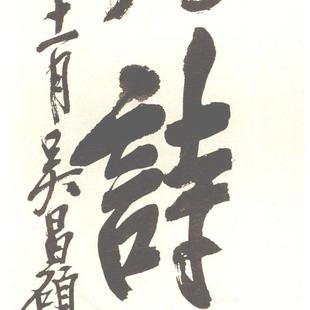 詩
十一月吳昌碩